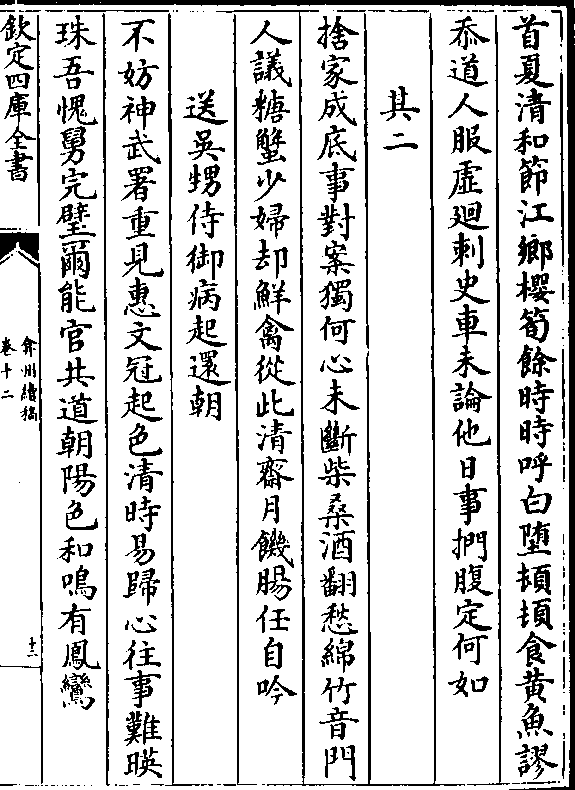 首夏清和節江鄉櫻筍餘時時呼白墮頓頓食黃魚謬
忝道人服虛廻刺史車未論他日事捫腹定何如
其二
捨家成底事對案獨何心未斷柴桑酒翻愁綿竹音門
人議糖蟹少婦却鮮禽從此清齋月饑腸任自吟
送吳甥侍御病起還朝
不妨神武署重見惠文冠起色清時易歸心往事難暎
珠吾愧舅完璧爾能官共道朝陽色和鳴有鳳鸞
欽定四庫全書
弇州續稿
卷十二
十二